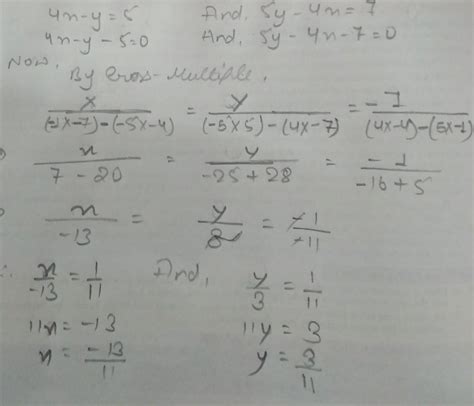 4x-y=5 And, 5y-4x=7
4x-y-5=0 And, 5y-4x-7=0
Now,
By Cross-Multiple,
x/((-1x-7)-(-5x-4) = y/((-5x5)-(4x-7) = -1/((4x-4)-(5x-1)
x/(7-20) = y/(-25+28) = -1/(-16+5)
x/-13 = y/3 = -1/-11
∴ x/-13 = 1/11 And, y/3 = 1/11
11x = -13 11y = 3
x = -13/11 y = 3/11